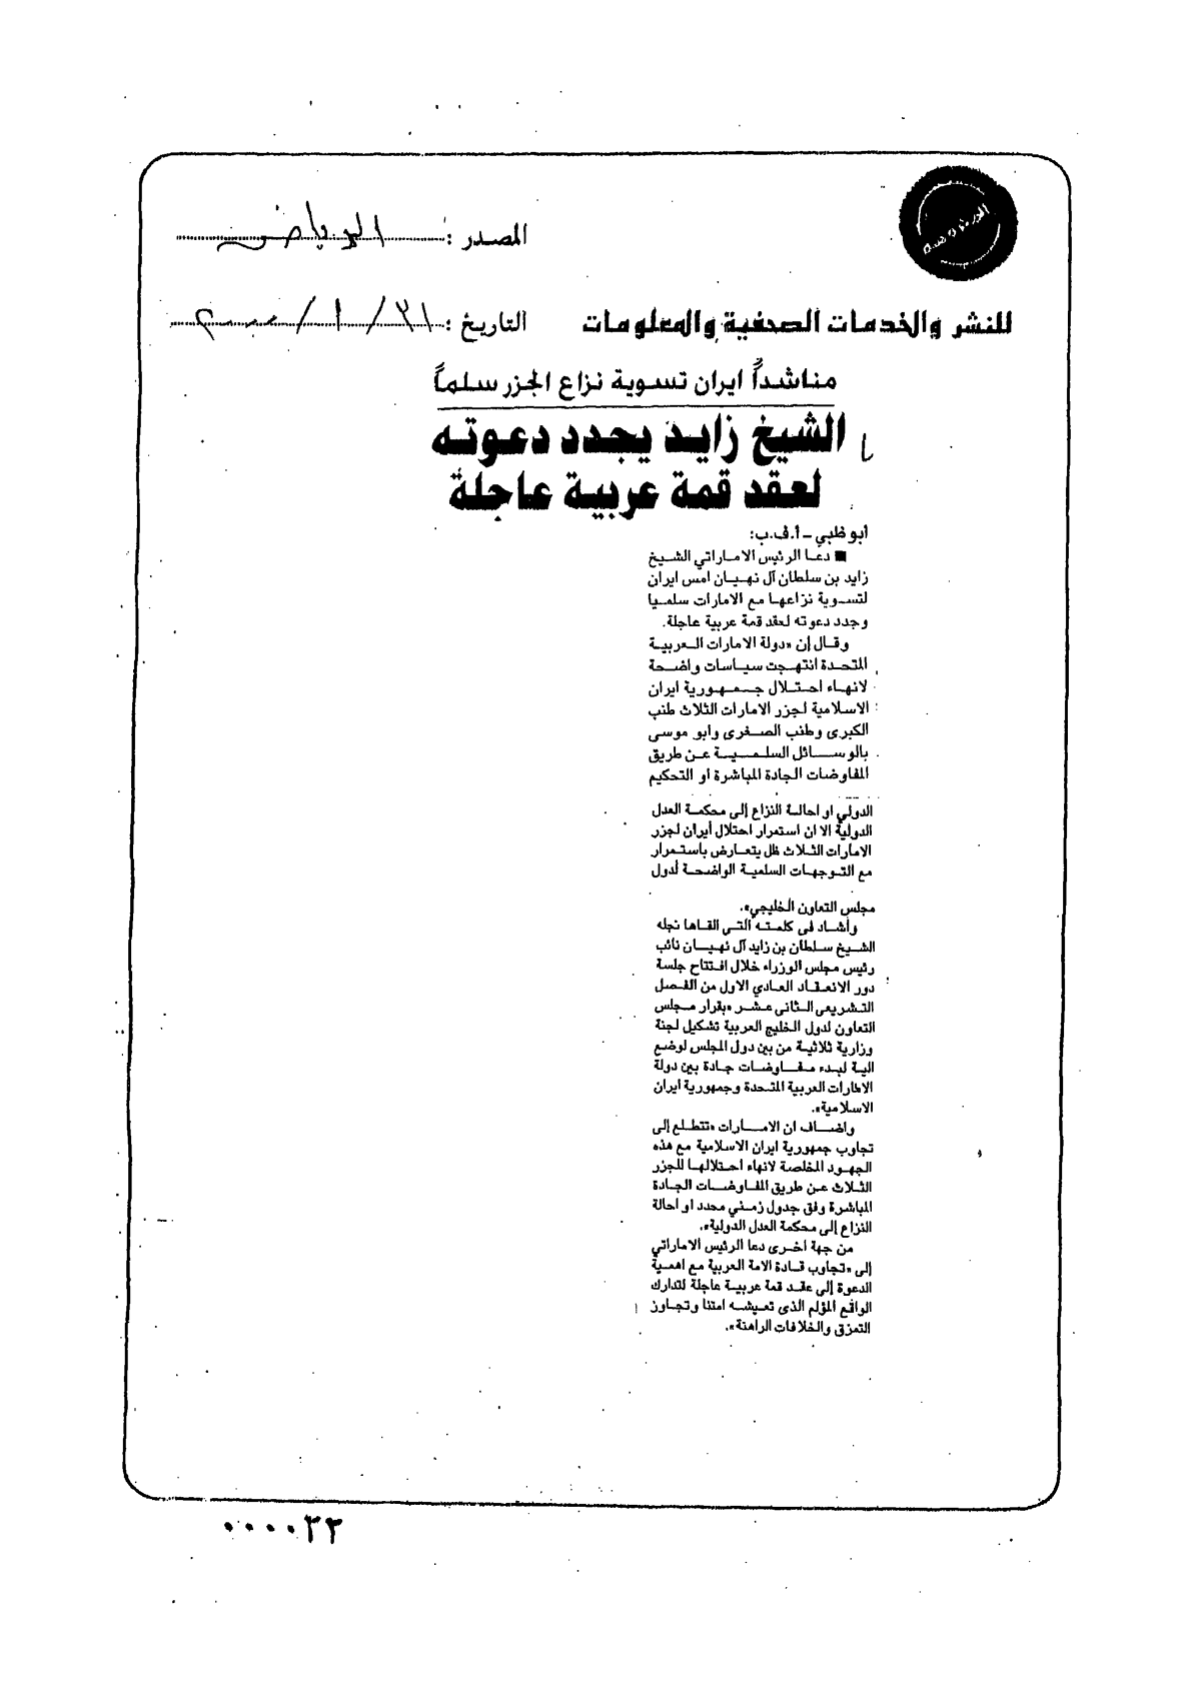 المصدر : الرياض
للنشر والخدمات الصحفية والمعلومات
التاريخ : ٢١ / ١ / ٢٠٠٠
مناشداً ايران تسوية نزاع الجزر سلماً
الشيخ زايد يجدد دعوته
لعقد قمة عربية عاجلة
أبو ظبي - أ.ف.ب:
■ دعا الرئيس الاماراتي الشيخ
زايد بن سلطان آل نهيان امس ايران
لتسوية نزاعها مع الامارات سلميا
وجدد دعوته لعقد قمة عربية عاجلة.
وقال إن «دولة الامارات العربية
المتحدة انتهجت سياسات واضحة
لانهاء احتلال جمهورية ايران
الاسلامية لجزر الامارات الثلاث طنب
الكبرى وطنب الصغرى وابو موسى
بالوسائل السلمية عن طريق
المفاوضات الجادة المباشرة او التحكيم
الدولي او احالة النزاع إلى محكمة العدل
الدولية الا ان استمرار احتلال أيران لجزر
الامارات الثلاث ظل يتعارض باستمرار
مع التوجهات السلمية الواضحة لدول
مجلس التعاون الخليجي».
وأشاد في كلمته التي القاها نجله
الشيخ سلطان بن زايد آل نهيان نائب
رئيس مجلس الوزراء خلال افتتاح جلسة
دور الانعقاد العادي الاول من الفصل
التشريعي الثاني عشر «بقرار مجلس
التعاون لدول الخليج العربية تشكيل لجنة
وزارية ثلاثية من بين دول المجلس لوضع
الية لبدء مفاوضات جادة بين دولة
الامارات العربية المتحدة وجمهورية ايران
الاسلامية».
واضاف ان الامارات «تتطلع إلى
تجاوب جمهورية ايران الاسلامية مع هذه
الجهود المخلصة لانهاء احتلالها للجزر
الثلاث عن طريق المفاوضات الجادة
المباشرة وفق جدول زمني محدد او احالة
النزاع إلى محكمة العدل الدولية».
من جهة اخرى دعا الرئيس الاماراتي
إلى «تجاوب قادة الامة العربية مع اهمية
الدعوة إلى عقد قمة عربية عاجلة لتدارك
الواقع المؤلم الذي تعيشه امتنا وتجاوز
التمزق والخلافات الراهنة».